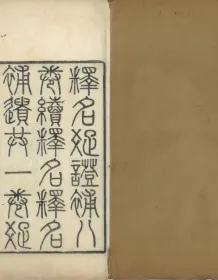 釋名疏證補八
卷續釋名釋名
補遺共一卷疏